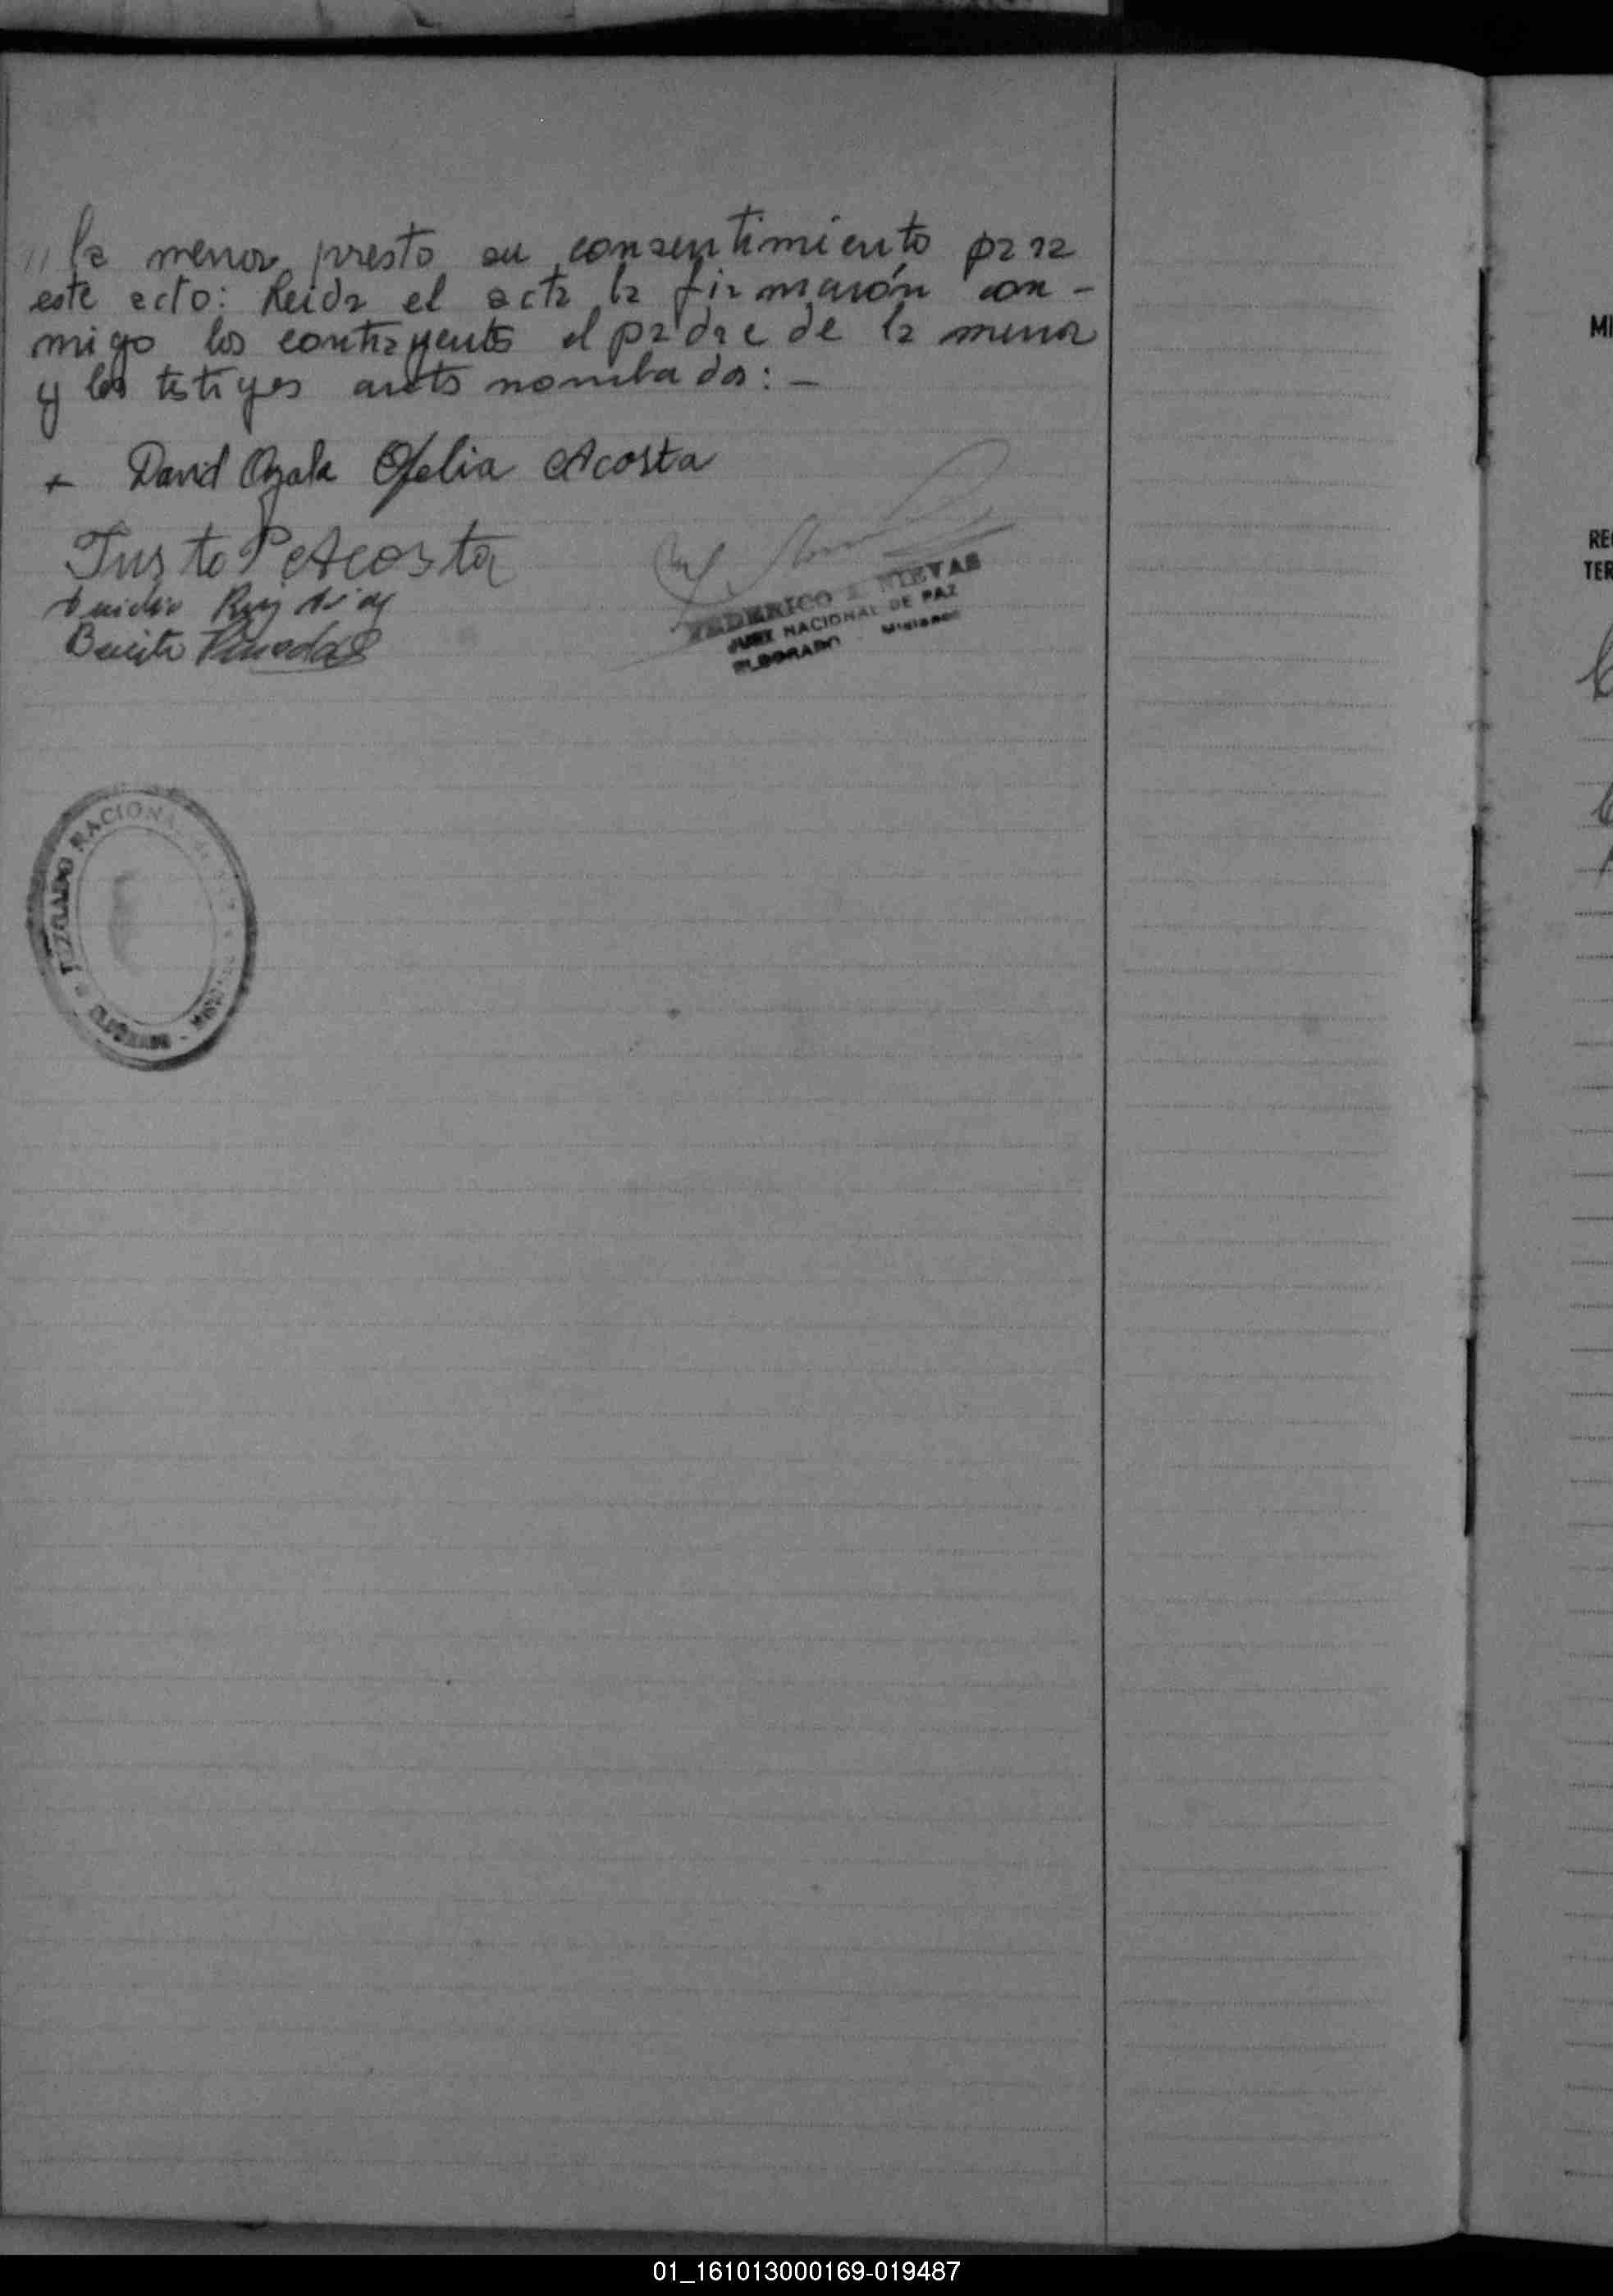 // la menor presto su consentimiento para
este acto: Leida el acta la firmarón con-
migo los contrayents el padre de la menor
y los testigos antes nombrados: -
+ David Ayala Ofelia Acosta
Justo P Acosta
Benito Pineda
FEDERICO NIEVAS
JUEZ NACIONAL DE PAZ
ELDORADO - Misiones
JUZGADO NACIONAL
ELDORADO - MISIONES
MI
RE
TER
01_161013000169-019487